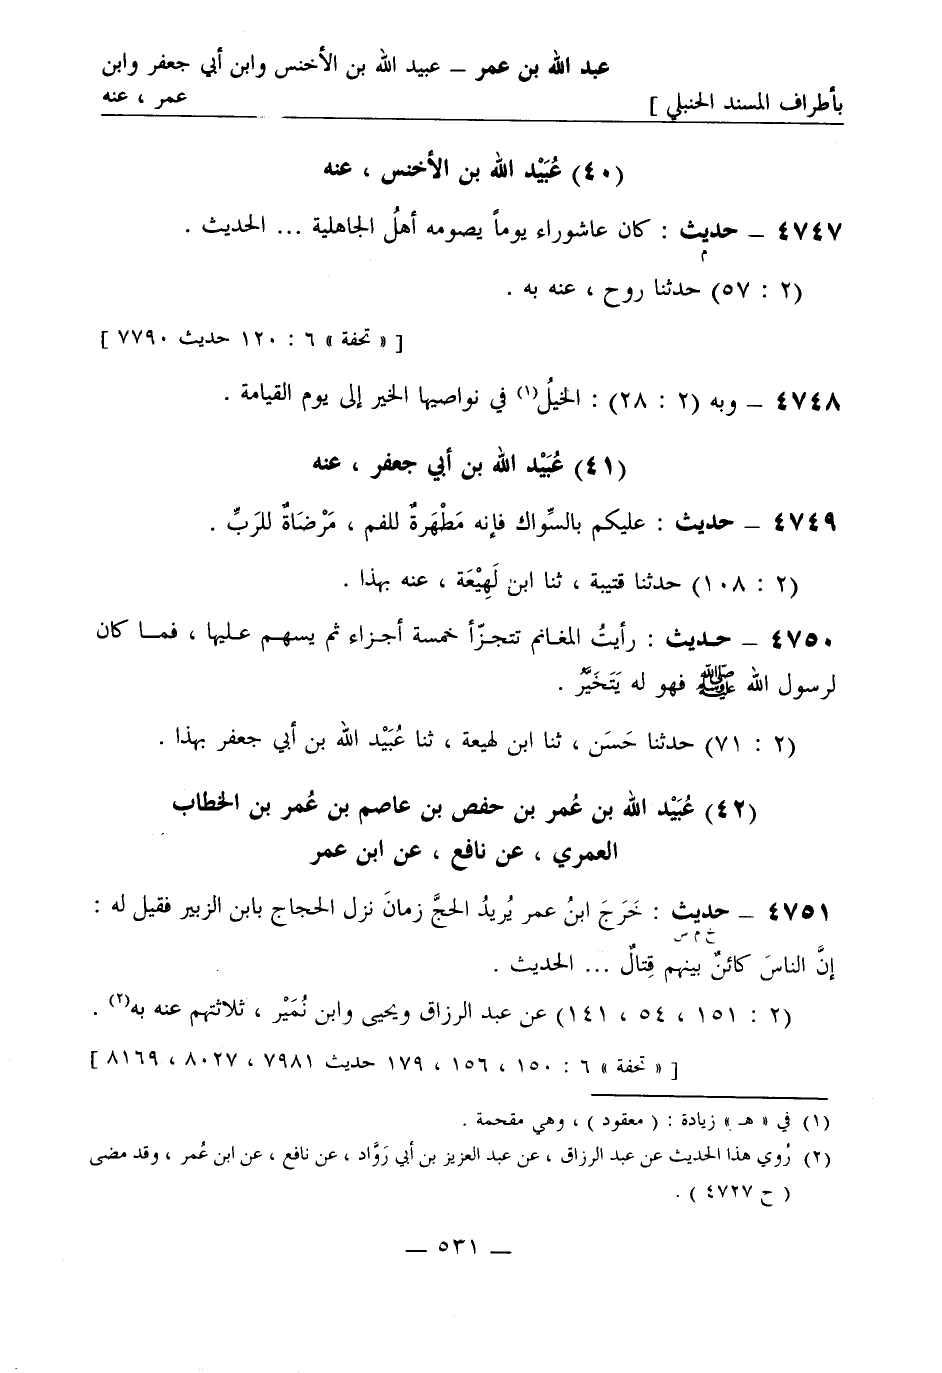 عبد الله بن عمر – عبيد الله بن الأخنس وابن أبي جعفر وابن
بأطراف المسند الحنبلي ] عمر ، عنه
(٤٠) عُبَيْد الله بن الأخنس ، عنه
٤٧٤٧ – حديث : كان عاشوراء يوماً يصومه أهلُ الجاهلية ... الحديث .
م
(٢ : ٥٧) حدثنا روح ، عنه به .
[ « تحفة » ٦ : ١٢٠ حديث ٧٧٩٠ ]
٤٧٤٨ – وبه (٢ : ٢٨) : الخيلُ(١) في نواصيها الخير إلى يوم القيامة .
(٤١) عُبَيْد الله بن أبي جعفر ، عنه
٤٧٤٩ – حديث : عليكم بالسِّواك فإنه مَطْهَرةٌ للفم ، مَرْضَاةٌ للرَبِّ .
(٢ : ١٠٨) حدثنا قتيبة ، ثنا ابن لَهِيْعَة ، عنه بهذا .
٤٧٥٠ – حديث : رأيتُ المغانم تتجزّأ خمسة أجزاء ثم يسهم عليها ، فما كان
لرسول الله ﷺ فهو له يَتَخَيَّرُ .
(٢ : ٧١) حدثنا حَسَن ، ثنا ابن لهيعة ، ثنا عُبَيْد الله بن أبي جعفر بهذا .
(٤٢) عُبَيْد الله بن عُمر بن حفص بن عاصم بن عُمر بن الخطاب
العمري ، عن نافع ، عن ابن عمر
٤٧٥١ – حديث : خَرَجَ ابنُ عمر يُريدُ الحجَّ زمانَ نزل الحجاج بابن الزبير فقيل له :
خ م س
إنَّ الناسَ كائنٌ بينهم قِتالٌ ... الحديث .
(٢ : ١٥١ ، ٥٤ ، ١٤١) عن عبد الرزاق ويحيى وابن نُمَيْر ، ثلاثتهم عنه به(٢) .
[ « تحفة » ٦ : ١٥٠ ، ١٥٦ ، ١٧٩ حديث ٧٩٨١ ، ٨٠٢٧ ، ٨١٦٩ ]
(١) في « هـ » زيادة : ( معقود ) ، وهي مقحمة .
(٢) رُوي هذا الحديث عن عبد الرزاق ، عن عبد العزيز بن أبي رَوَّاد ، عن نافع ، عن ابن عُمر ، وقد مضى
( ح ٤٧٢٧ ) .
– ٥٣١ –